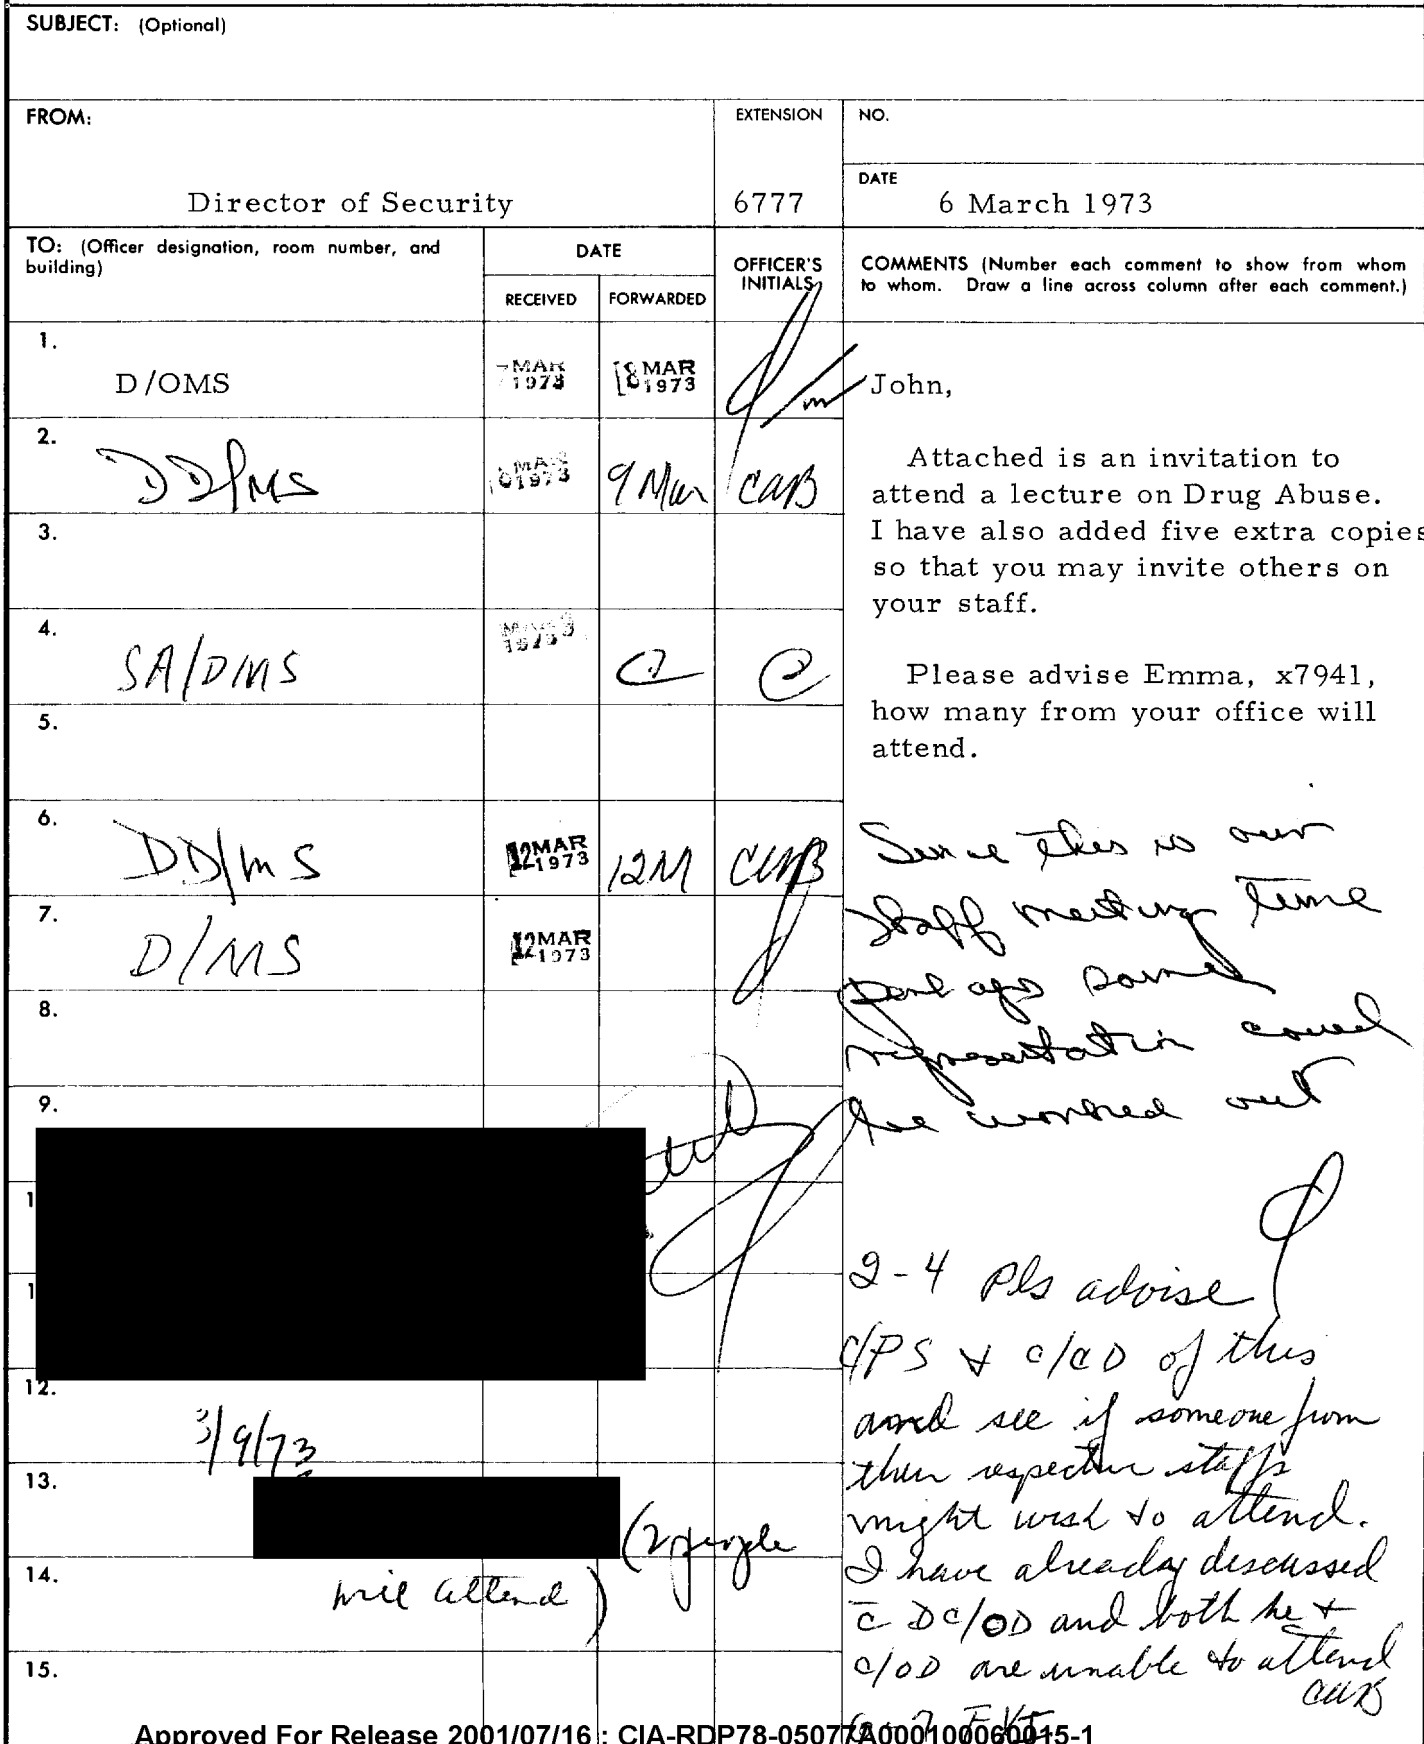 SUBJECT: (Optional)
FROM:
Director of Security
EXTENSION
6777
NO.
DATE
6 March 1973
TO: (Officer designation, room number, and
building)
DATE
RECEIVED
FORWARDED
OFFICER'S
INITIALS
COMMENTS (Number each comment to show from whom
to whom. Draw a line across column after each comment.)
1.
D/OMS
7 MAR
1973
8 MAR
1973
2.
DD/MS
MAR
1973
9 Mar
CUB
3.
4.
SA/DMS
1973
5.
6.
DD/MS
12 MAR
1973
12 M
CUB
7.
D/MS
12 MAR
1973
8.
9.
12.
3/9/73
13.
(2 people
14.
will attend)
15.
John,
Attached is an invitation to
attend a lecture on Drug Abuse.
I have also added five extra copies
so that you may invite others on
your staff.
Please advise Emma, x7941,
how many from your office will
attend.
Since this is our
staff meeting time
perhaps some
representation could
be worked out
2-4 Pls advise
C/PS & C/CD of this
and see if someone from
their respective staffs
might wish to attend.
I have already discussed
c̄ DC/OD and both he +
C/OD are unable to attend
CUB
Approved For Release 2001/07/16 : CIA-RDP78-05077A000100060015-1